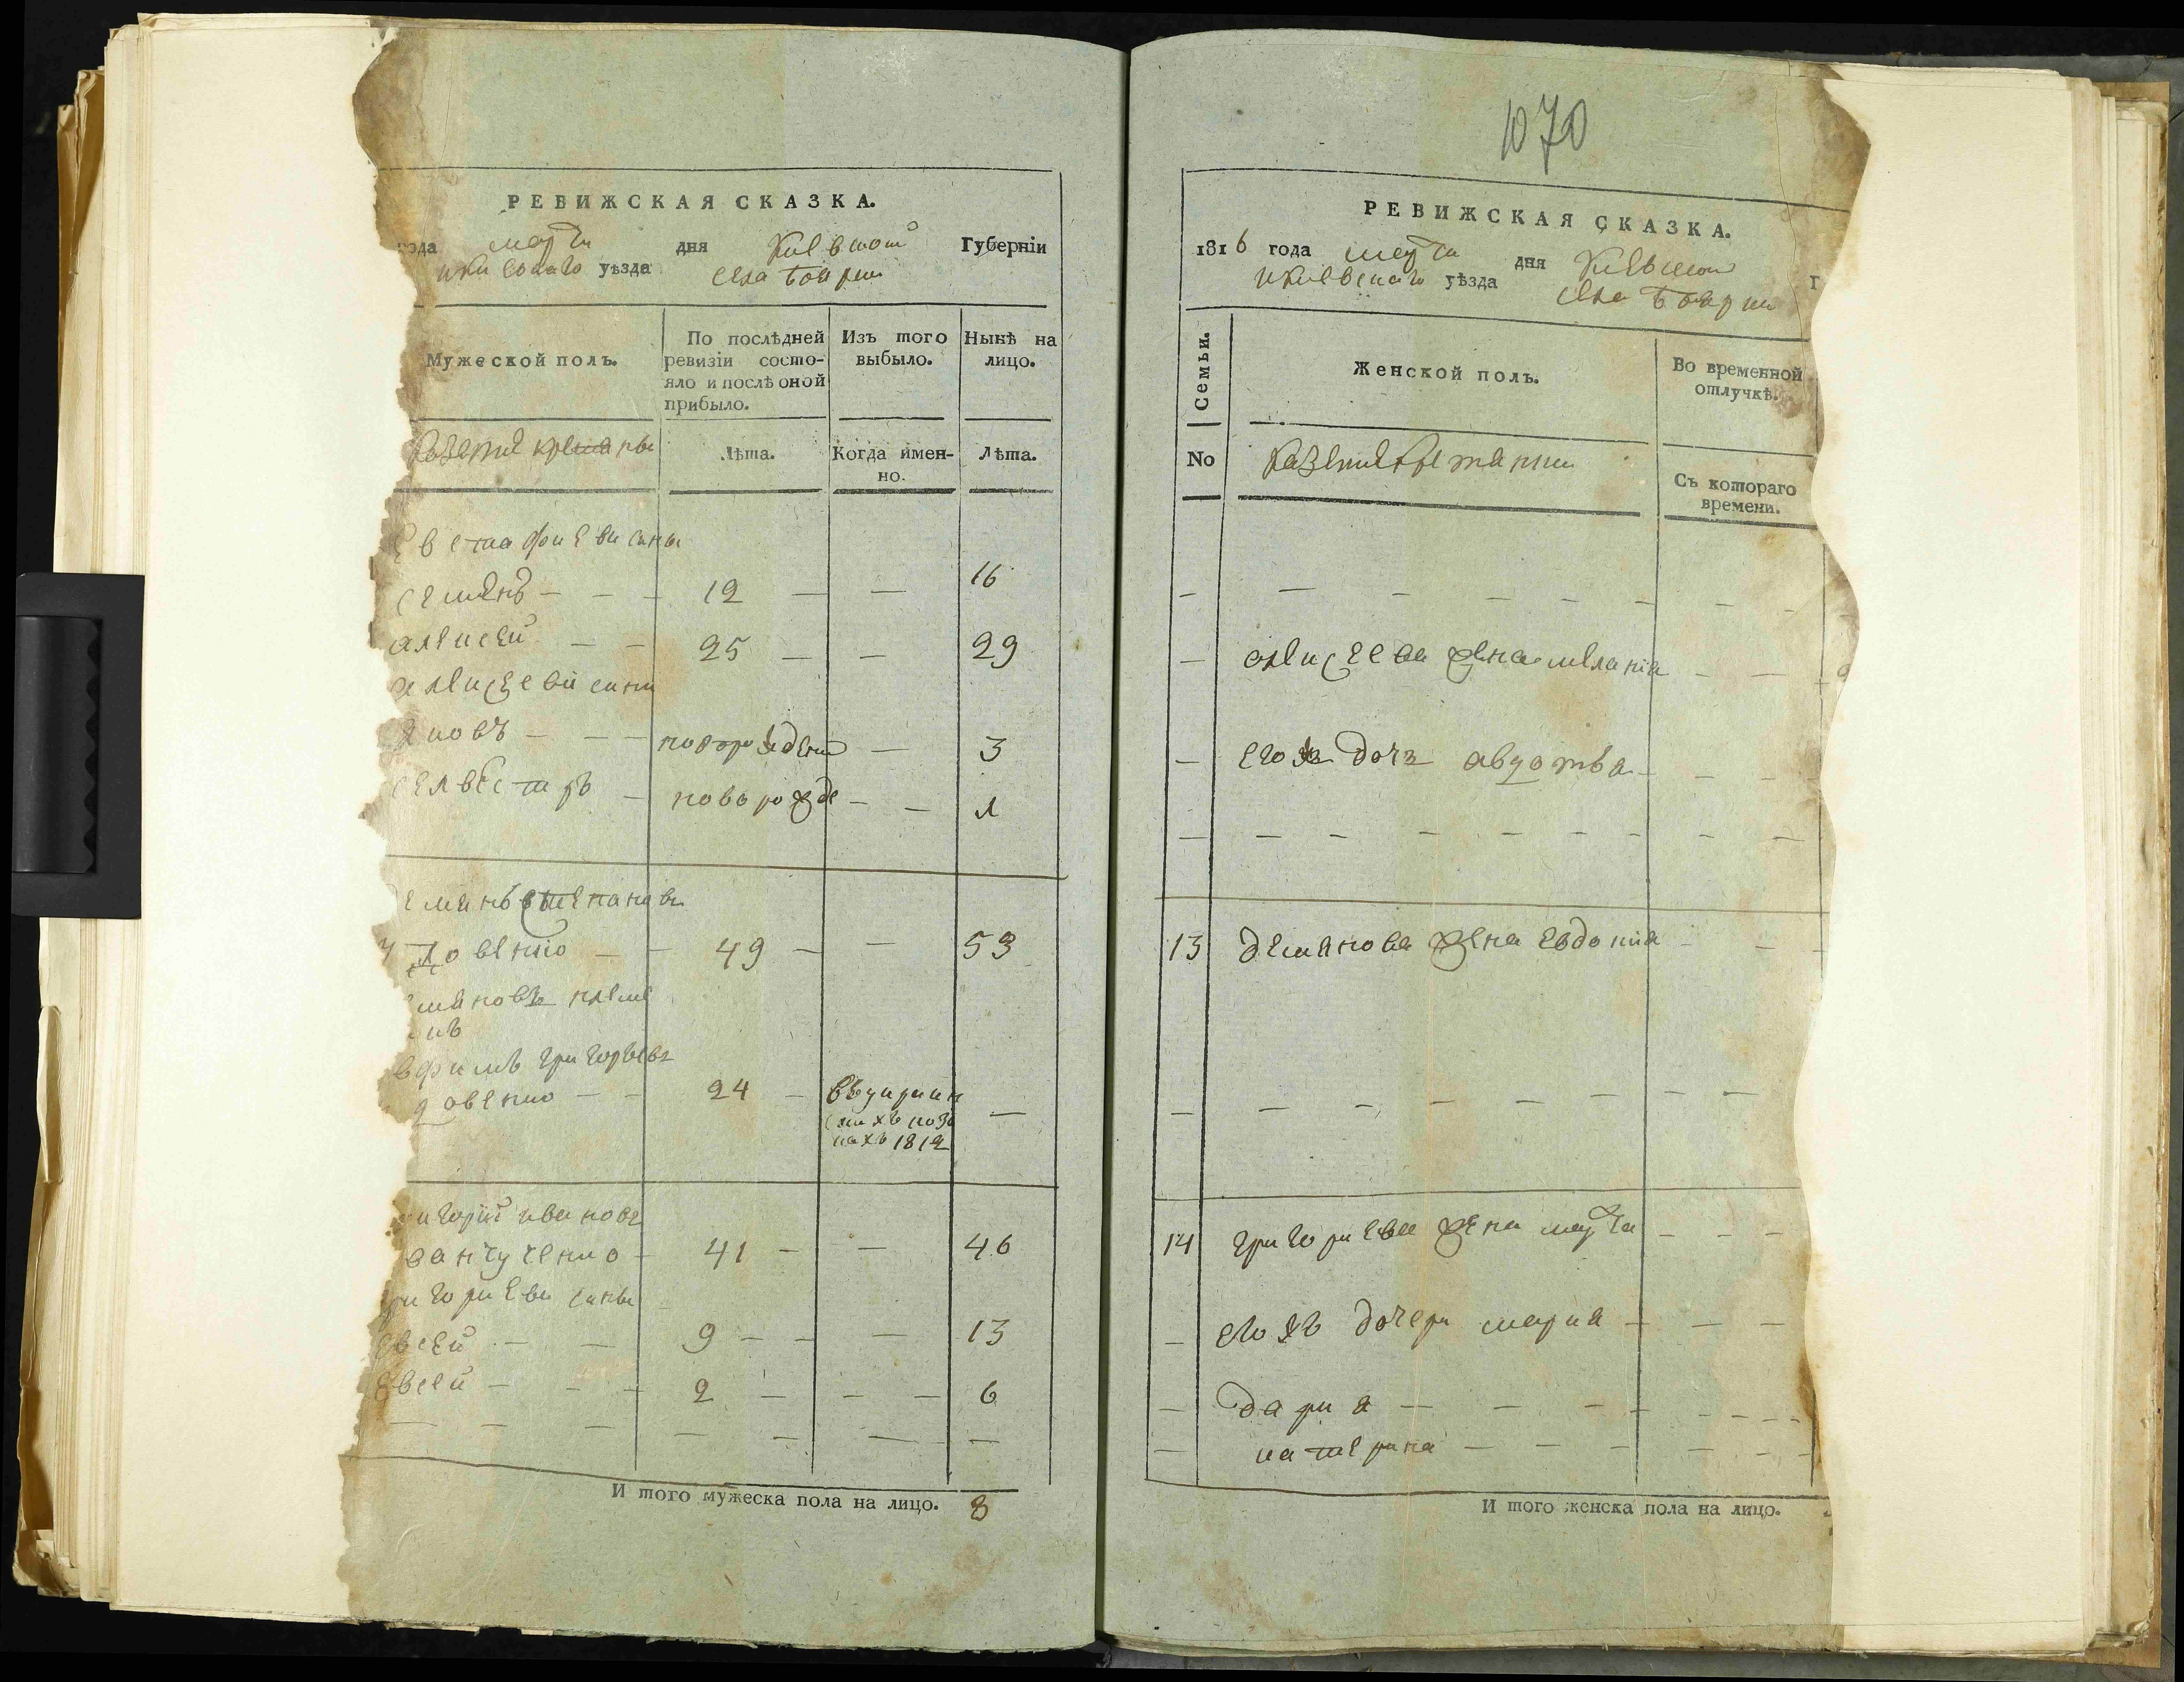 РЕВИЖСКАЯ СКАЗКА.
года марта дня Киевской Губерніи
икиевскаго уѣзда села Боярки
Мужеской полъ.
По послѣдней ревизіи состо-
яло и послѣ оной
прибыло.
Изъ того
выбыло.
Нынѣ на
лицо.
казенніе крестяны
Лѣта.
Когда имен-
но.
Лѣта.
Евстафиеви сыны
семенъ — — — 12 — — 16
алексей — — 25 — — 29
алексееви сини
яковъ — — — новорожденій — 3
селвестръ — новорожде — — 1
демянъ степановъ
довенко — — 49 — — 53
мяновъ племе
икъ
вфимъ григорьевъ
довенко — — 24 —
— 1812
григорій ивановъ
ванченко — 41 — — 46
григориеви сыны
евсей — — 9 — — — 13
евсей — — — 2 — — — 6
И того мужеска пола на лицо. 8
1070
РЕВИЖСКАЯ СКАЗКА.
1816 года марта дня Киевской Г
икиевскаго уѣзда села Боярки
Семьи.
Женской полъ.
Во временной
отлучкѣ.
No
казенніе крестянки
Съ котораго
времени.
— алексеева жена меланія — — —
— его жъ дочъ авдотья — — —
13 демянова жена евдокия — — —
14 григориева жена марта — — —
— его жъ дочери мария — — —
— дария — — — — — — —
— катерина — — — — — —
И того женска пола на лицо.